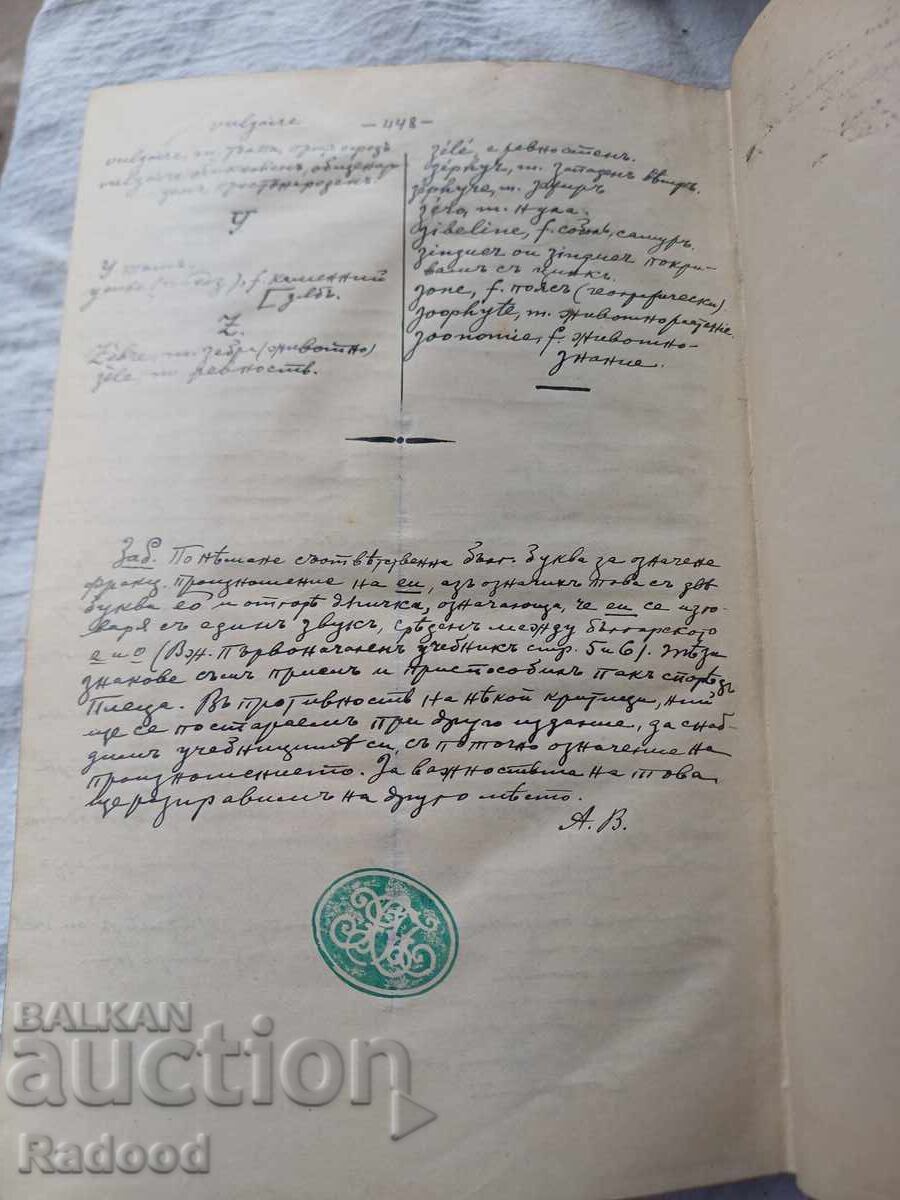 vulgaire
— 448 —
У
Z.
zèle m ревность.
zélé, e ревностенъ.
zéphyr, m. западенъ вѣтръ.
zéphyre, m. зефиръ
zéro, m. нула.
zibeline, f. соболь, самуръ.
zinguer ou zinquer покри-
вамъ съ цинкъ.
zone, f. поясъ (географически)
zoophyte, m. животнорастение.
zoonomie, f. животно-
знание.
Заб. По нѣмане съответственна бълг. буква за означене
франц. произношение на eu, азъ означихъ това съ двѣ
букви ео и отгорѣ дъгичка, означающа, че eu се изго-
варя съ единъ звукъ, срѣденъ между българското
е и о (Вж. Първоначаленъ учебникъ стр. 5 и 6). Тѣзи
знакове съмъ приелъ и приспособилъ пакъ споредъ
Плеца. Въ противность на нѣкой критици, ний
ще се постараемъ при друго издание, да снаб-
димъ учебницитѣ си, съ по точно означение на
произношението. За важностьта на това
ще резправимъ на друго мѣсто.
А. В.
BALKAN
auction
Radood